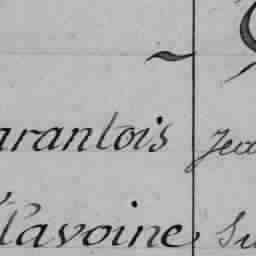 arantois Jea
lavoine Su